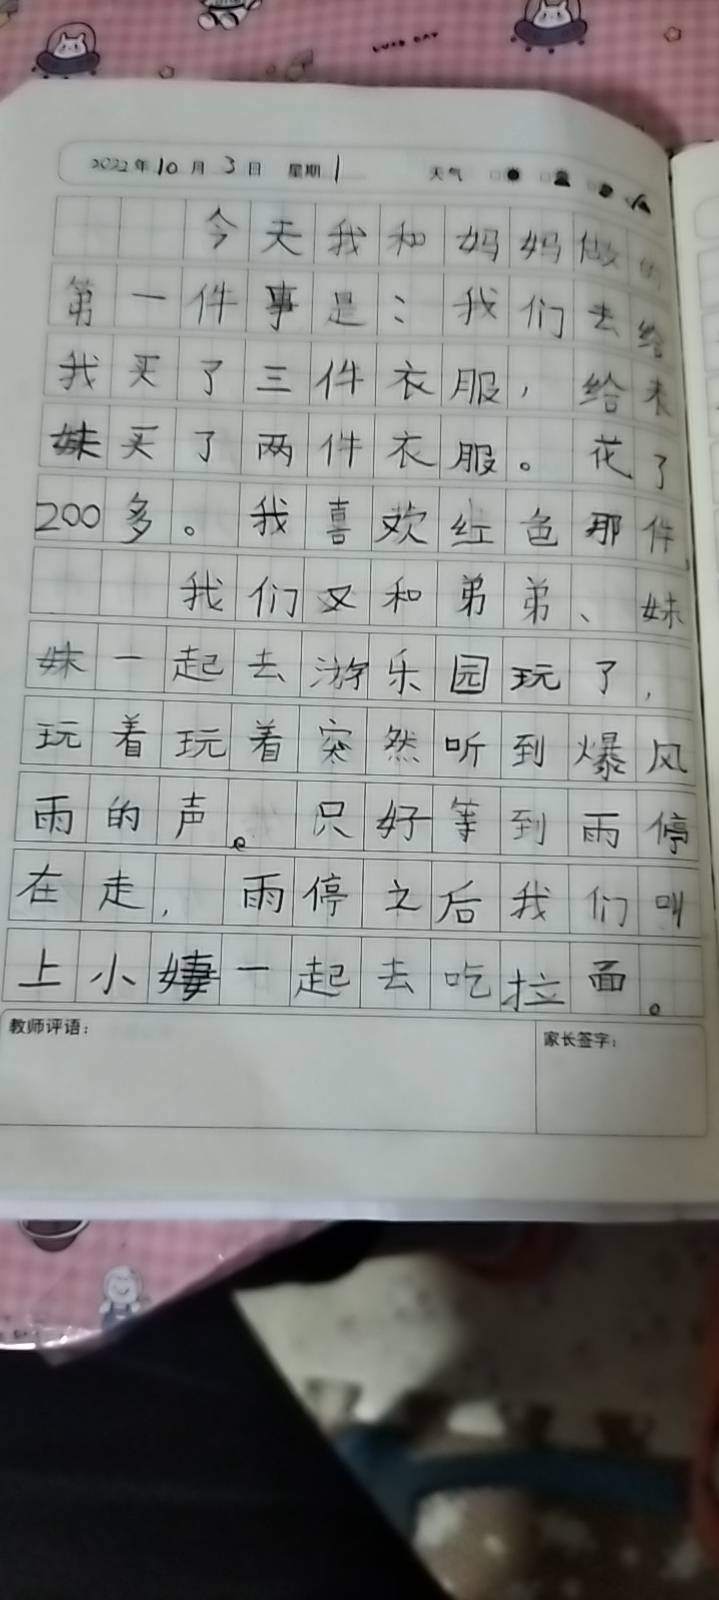 2022年10月3日 星期1 天气
今天我和妈妈做的
第一件事是：我们去给
我买了三件衣服，给未
妹买了两件衣服。花了
200多。我喜欢红色那件，
我们又和弟弟、妹
妹一起去游乐园玩了，
玩着玩着突然听到爆风
雨的声。只好等到雨停
在走，雨停之后我们叫
上小一起去吃拉面。
教师评语：
家长签字：